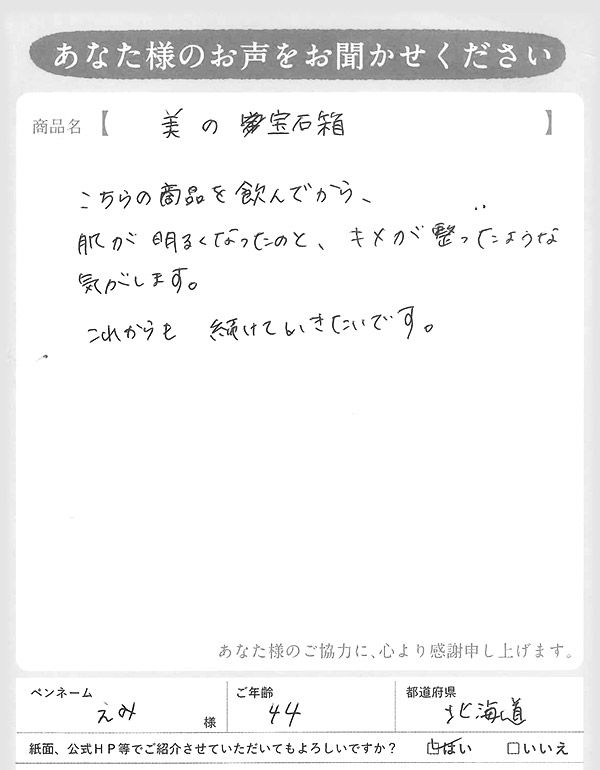 あなた様のお声をお聞かせください
商品名【 美の宝石箱 】
こちらの商品を飲んでから、
肌が明るくなったのと、キメが整ったような
気がします。
これからも 続けていきたいです。
あなた様のご協力に、心より感謝申し上げます。
ペンネーム ご年齢 都道府県
えみ 様 44 北海道
紙面、公式HP等でご紹介させていただいてもよろしいですか? ☑はい □いいえ